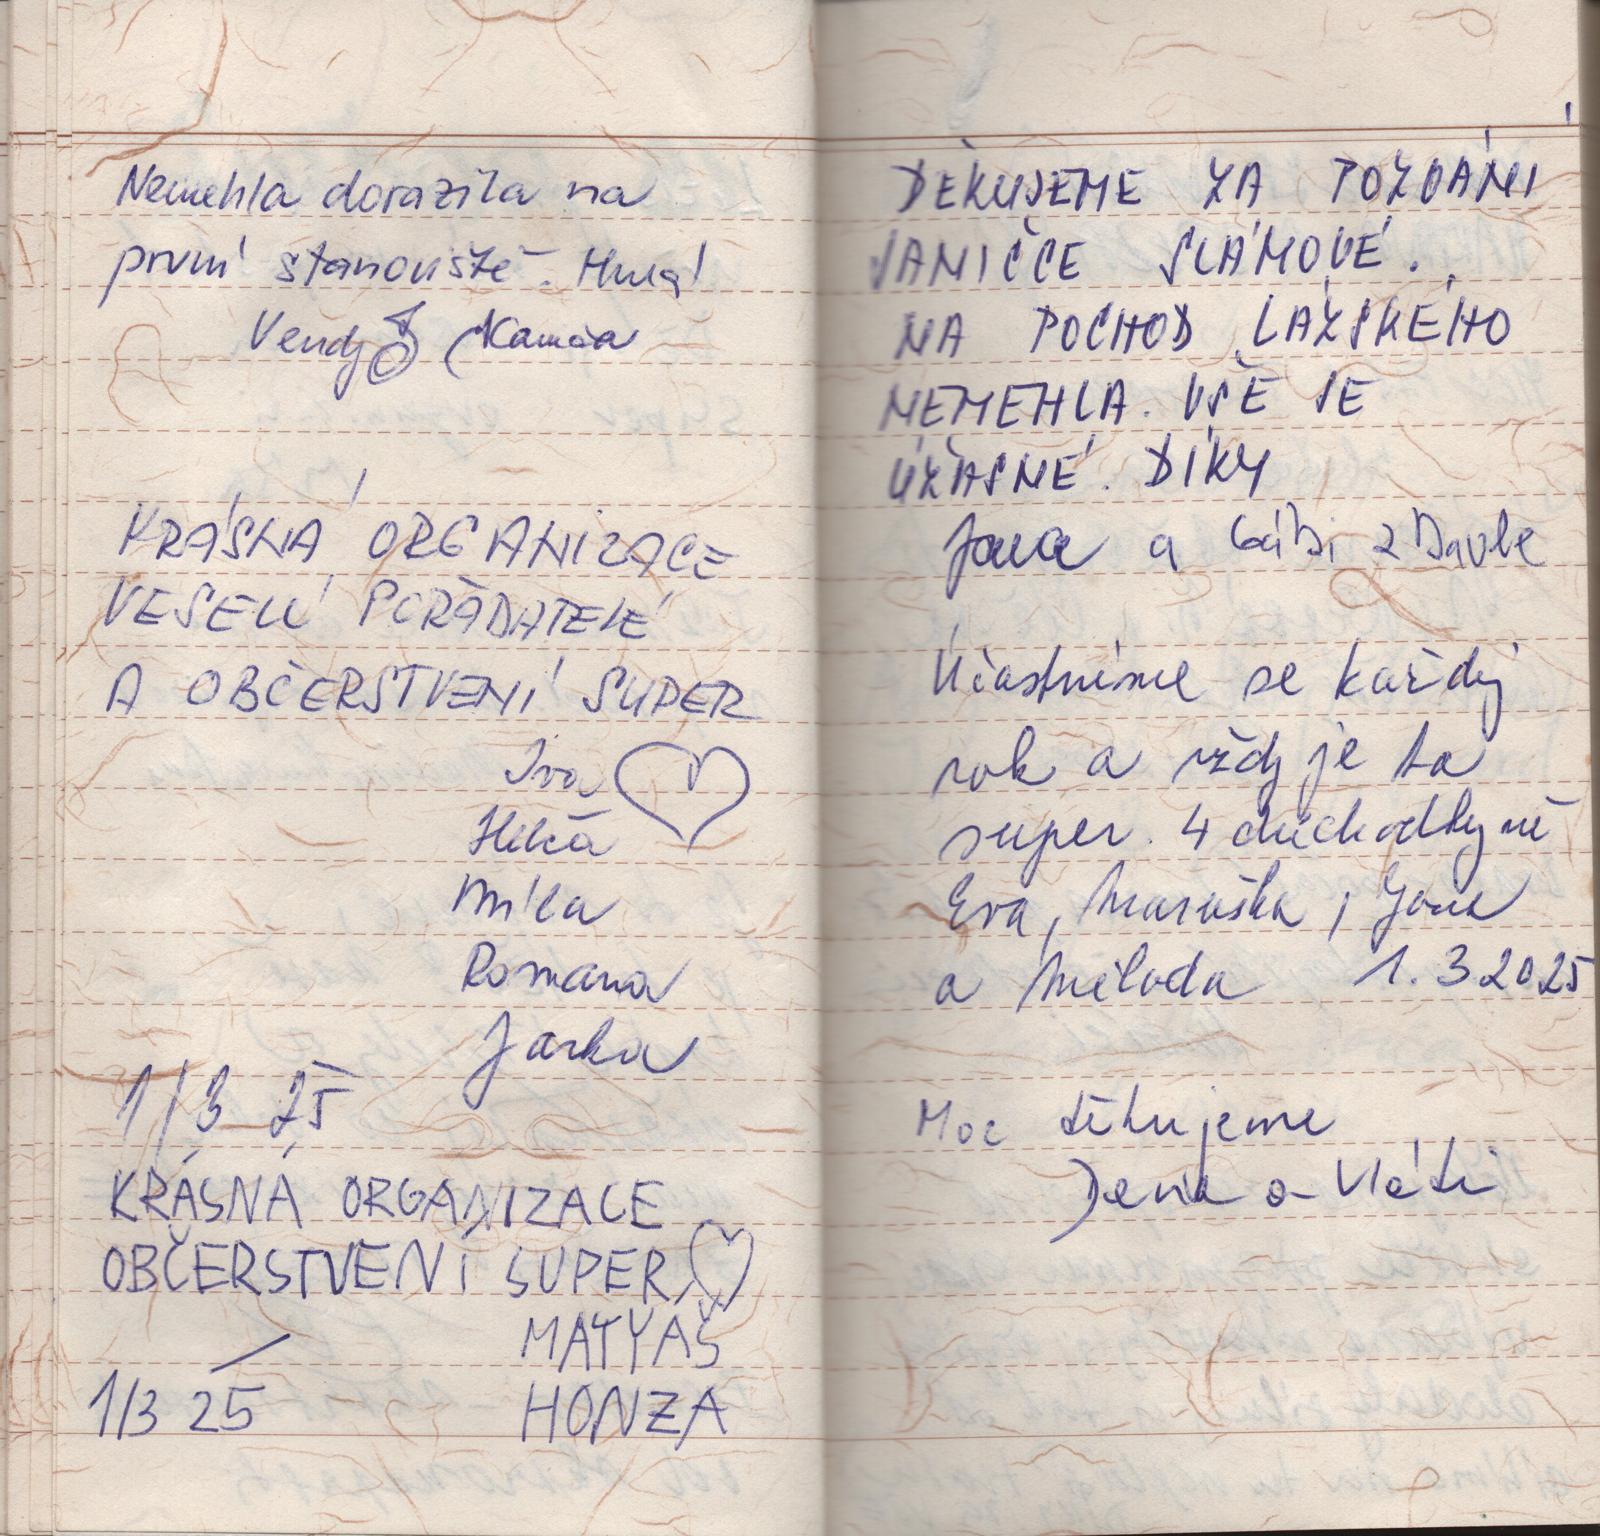 Nemehla dorazila na
první stanoviště. Hurá!
Vendy Kamča
KRÁSNÁ ORGANIZACE
VESELÍ POŘÁDATELÉ
A OBČERSTVENÍ SUPER
Iva
Míla
Romana
Jarka
1/3 25
KRÁSNÁ ORGANIZACE
OBČERSTVENÍ SUPER
MATYÁŠ
HONZA
1/3 25
DĚKUJEME ZA POZVÁNÍ
JANIČCE SLÁMOVÉ.
NA POCHOD LAŽSKÉHO
NEMEHLA. VŠE JE
ÚŽASNÉ. DÍKY
Jana a Gábi z Davle
Účastníme se každý
rok a vždy je to
super. 4 důchodkyně
Eva, Maruška, Jana
a Miloda 1. 3 2025
Moc děkujeme
a Vláďa